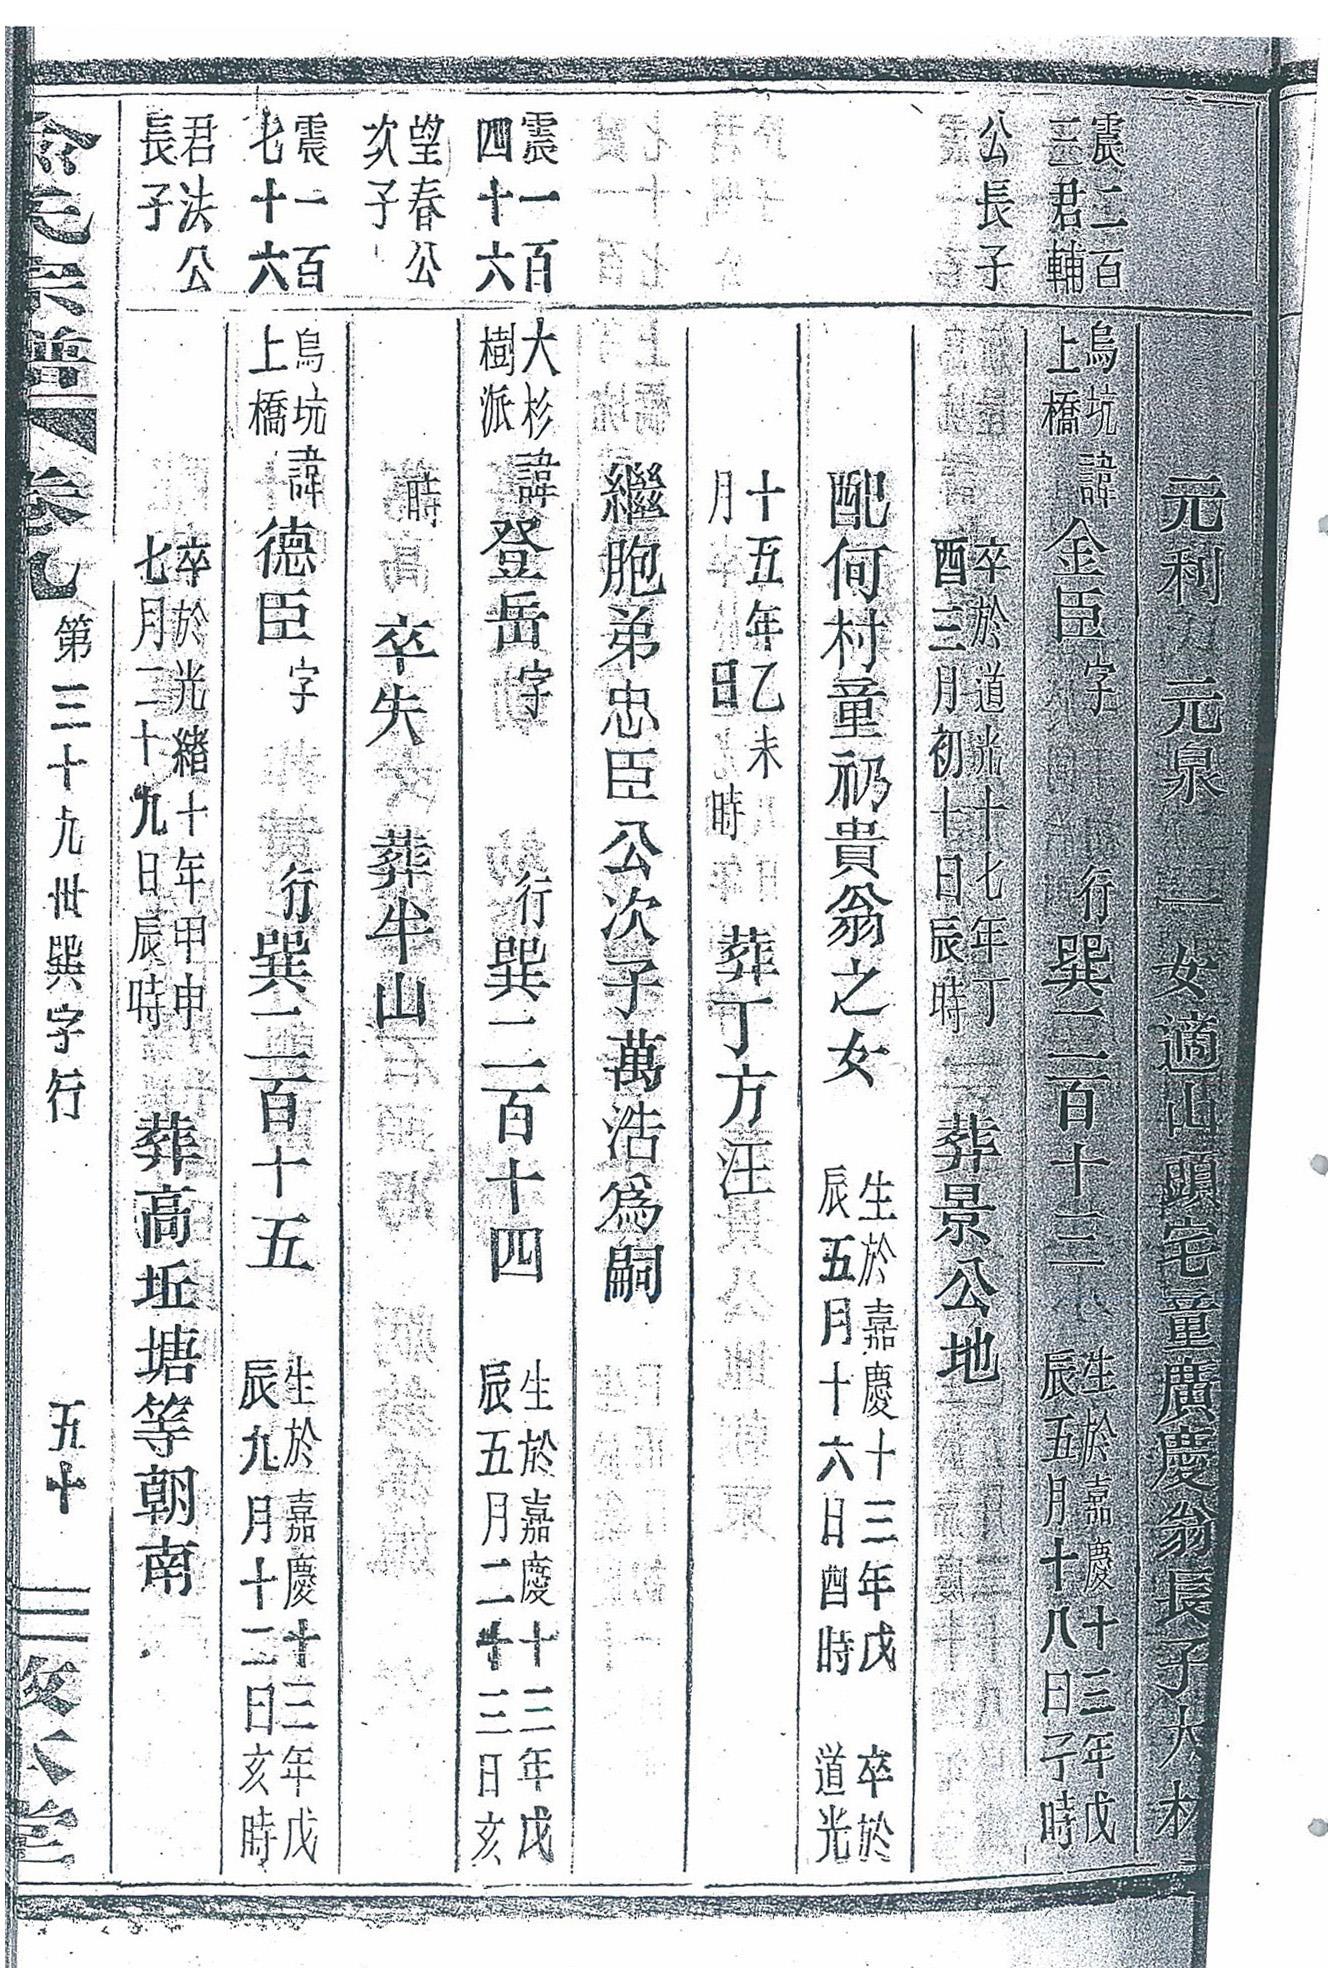 元利 元泉 一女適山頭宅童廣慶翁長子大林
震二百三君輔 烏坑上橋 諱金臣字 行巽二百十三 生於嘉慶十三年戊辰五月十八日子時
公長子 卒於道光十七年丁酉三月初十日辰時 葬景公地
配何村童礽貴翁之女 生於嘉慶十三年戊辰五月十六日酉時 卒於道光
十五年乙未 月 日 時 葬丁方汪
繼胞弟忠臣公次子萬浩為嗣
震一百四十六 大杉樹派 諱登岳字 行巽二百十四 生於嘉慶十三年戊辰五月二十三日亥
望春公次子 時 卒失 葬牛山
震一百七十六 烏坑上橋 諱德臣字 行巽二百十五 生於嘉慶十三年戊辰九月十二日亥時
君法公長子 卒於光緒十年甲申七月二十九日辰時 葬高坵塘等朝南
氏宗譜 卷九 第三十九卅巽字行 五十 堂